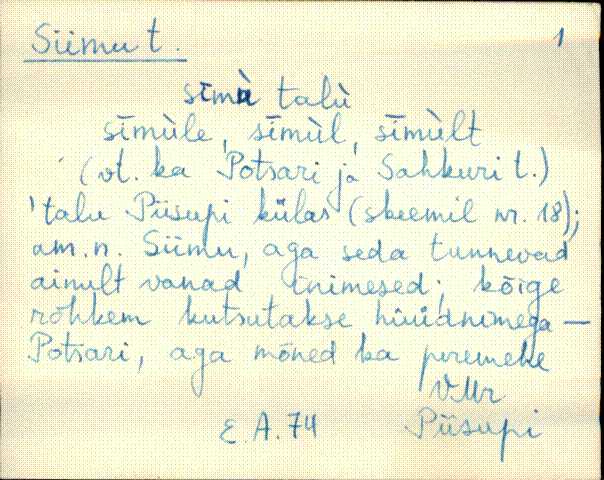 Siimu t. 1
sīmù talù
sīmùle, sīmùl, sīmùlt
(vt. ka Potsari ja Sahkuri t.)
'talu Piisupi külas (skeemil nr. 18);
am.n. Siimu, aga seda tunnevad
ainult vanad inimesed; kõige
rohkem kutsutakse hüüdnimega —
Potsari, aga mõned ka peremehe
VMr
E.A.74 Piisupi